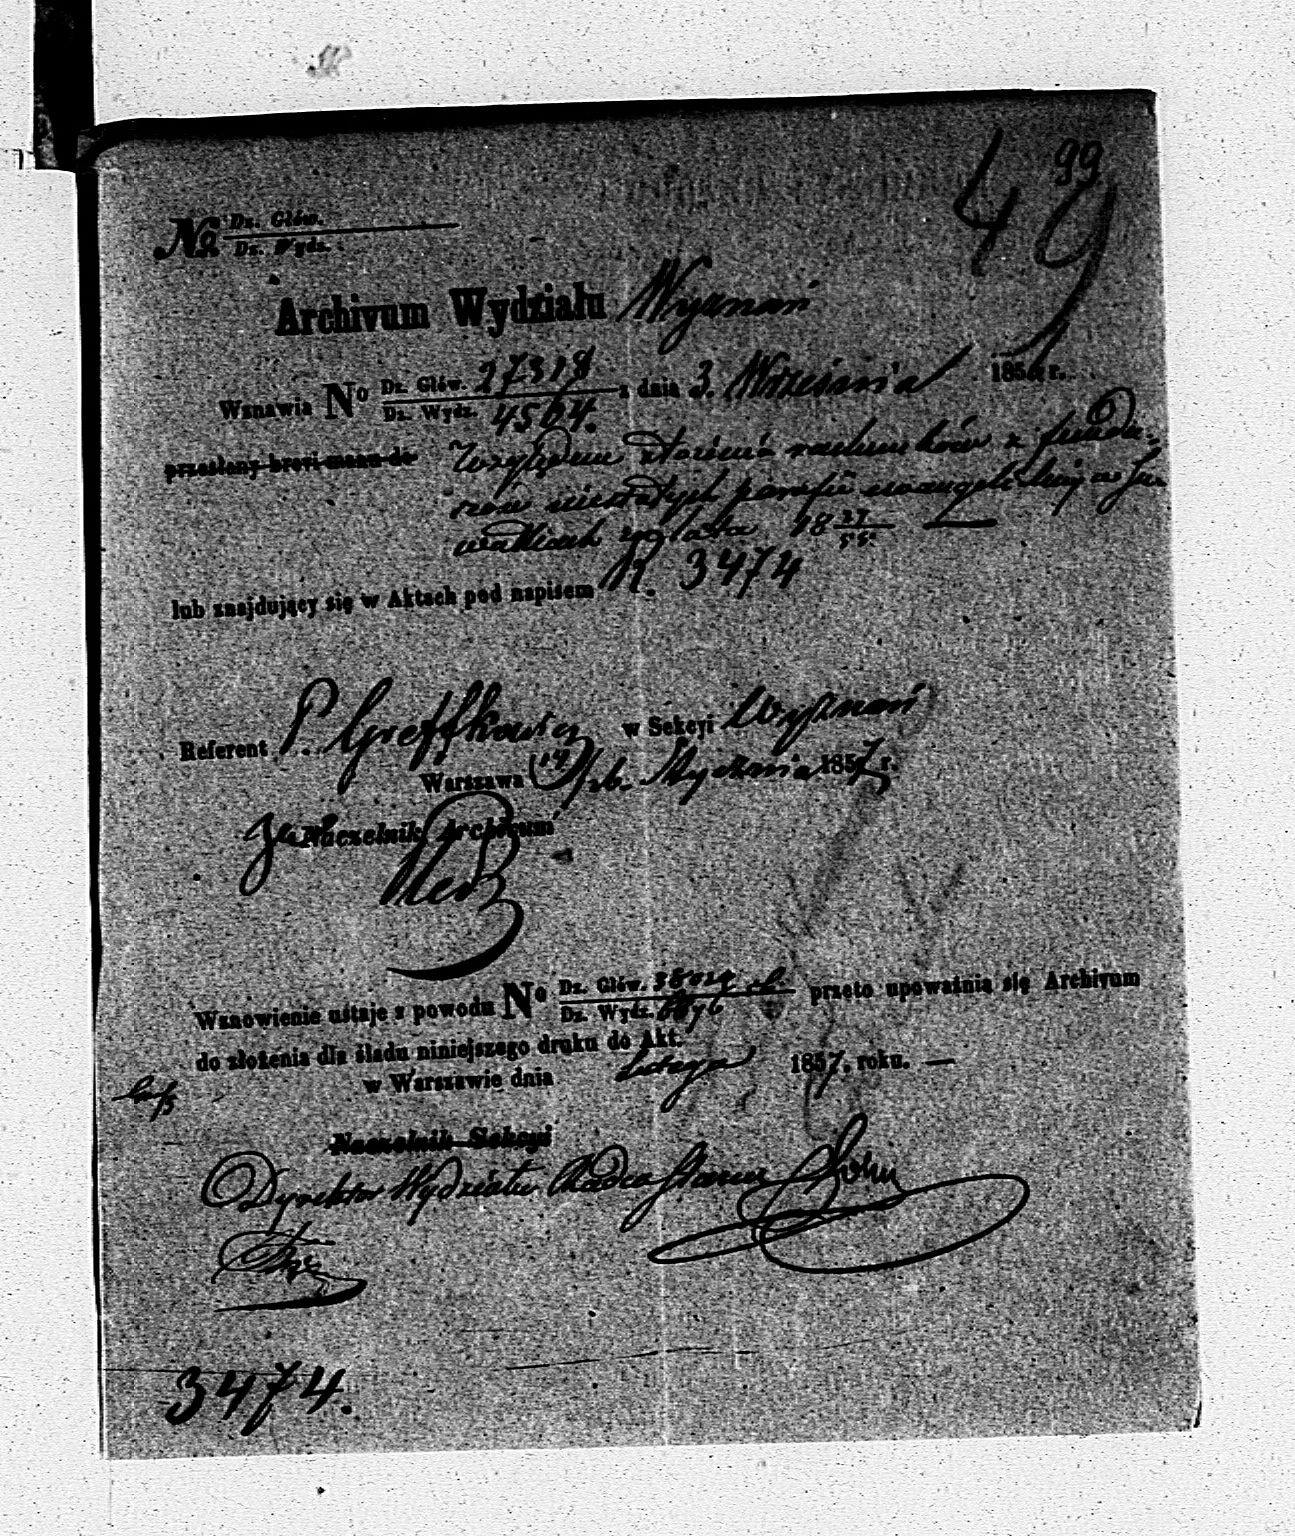 99
49
No Dz. Głów.
Dz. Wydz.
Archivum Wydziału Wyznań
Wznawia No Dz. Głów. 27318 z dnia 3. Września 1856 r.
Dz. Wydz. 4564.
przesłany brevi manu do Względem złożenia rachunków z fundu-
szów parafii ewangelickiej w Su-
wałkach za lata 18 27/55.
lub znajdujący się w Aktach pod napisem R. 3474
Referent P. Greffkowicz w Sekcyi Wyznań
Warszawa 19 Stycznia 1857 r.
Za Naczelnik Archivum
Wznowienie ustaje z powodu No Dz. Głów. 38024
Dz. Wydz. przeto upoważnia się Archivum
do złożenia dla śladu niniejszego druku do Akt.
w Warszawie dnia Lutego 1857. roku. —
Naczelnik Sekcyi
Dyrektor Wydziału Radca Stanu
3474.